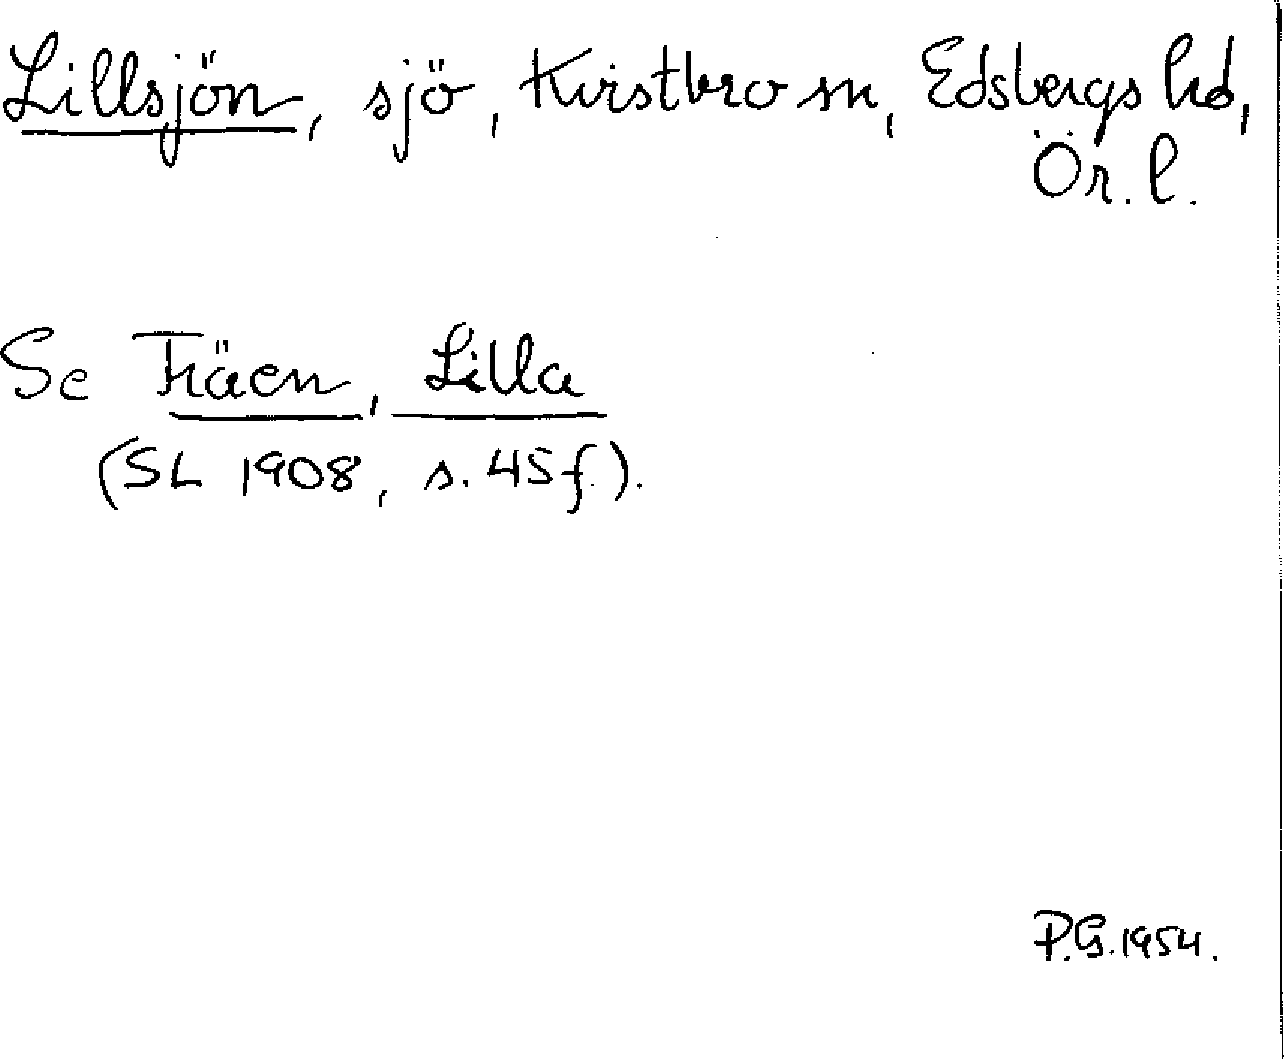 Lillsjön, sjö, Kvistbro sn, Edsbergs hd,
Ör. l.
Se Träen, Lilla
(SL 1908, s. 45 f.).
P.G. 1954.